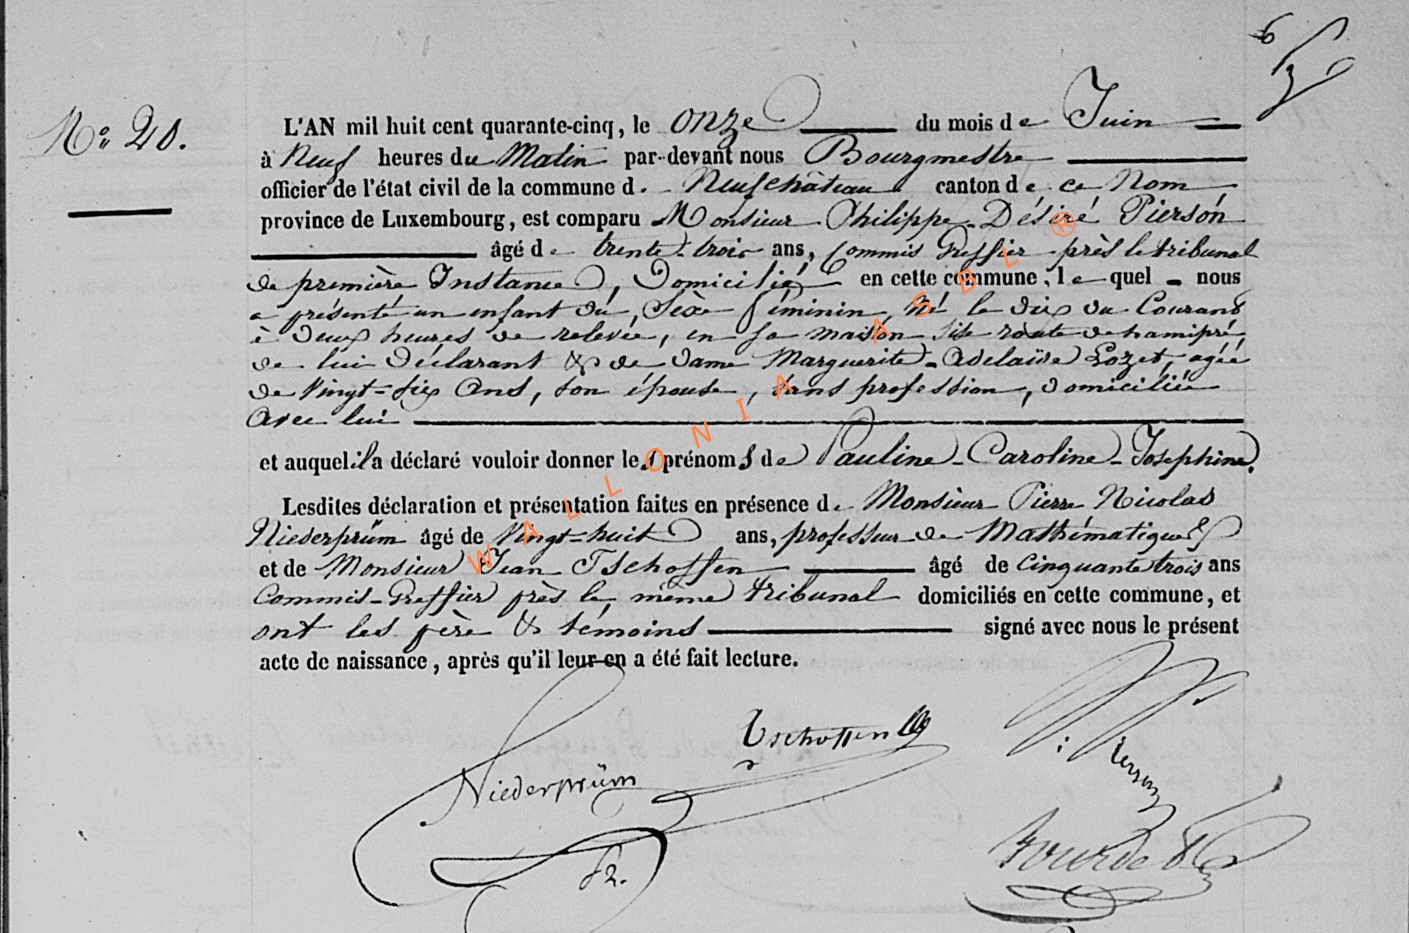 6
N° 20.
L'AN mil huit cent quarante-cinq, le onze du mois de Juin
à Neuf heures du Matin par-devant nous Bourgmestre
officier de l'état civil de la commune d. Neufchâteau canton de ce Nom
province de Luxembourg, est comparu Monsieur Philippe-Désiré Pierson
âgé de trente-trois ans, Commis Greffier près le tribunal
de première Instance, Domicilié en cette commune, lequel nous
a présenté un enfant du Sèxe féminin, Né le dix du Courant
à deux heures de relevée, en sa maison site route de hamipré,
de lui Déclarant & de dame Marguerite-Adelaïde Lozet, agée
de Vingt-six Ans, son épouse, sans profession, domiciliée
Avec lui
et auquel il a déclaré vouloir donner les prénoms de Pauline-Caroline-Josephine.
Lesdites déclaration et présentation faites en présence de Monsieur Pierre Nicolas
Niederprüm âgé de Vingt-huit ans, professeur de Mathématiques
et de Monsieur Jean Tschoffen âgé de Cinquante trois ans
Commis-Greffier près le même tribunal domiciliés en cette commune, et
ont les père & témoins signé avec nous le présent
acte de naissance, après qu'il leur en a été fait lecture.
Tschoffen
Pierson
Niederprüm
WALLONIA ASBL ®